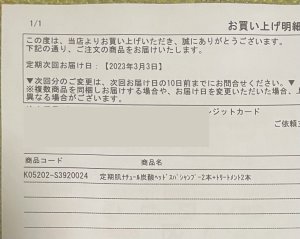 1/1
お買い上げ明細
この度は、当店よりお買い上げいただき、誠にありがとうございます。
下記の通り、ご注文の商品をお届けいたします。
定期次回お届け日:【2023年3月3日】
▼次回分のご変更は、次回お届け日の10日前までにお問合せください。▼
※複数商品を同梱しお届けする場合や、お届け日を変更いただいた場合、上
異なる場合がございます。
ジットカード
ご依頼
商品コード 商品名
K05202-S3920024 定期肌ﾅﾁｭｰﾙ炭酸ﾍｯﾄﾞｽﾊﾟｼｬﾝﾌﾟｰ2本+ﾄﾘｰﾄﾒﾝﾄ2本